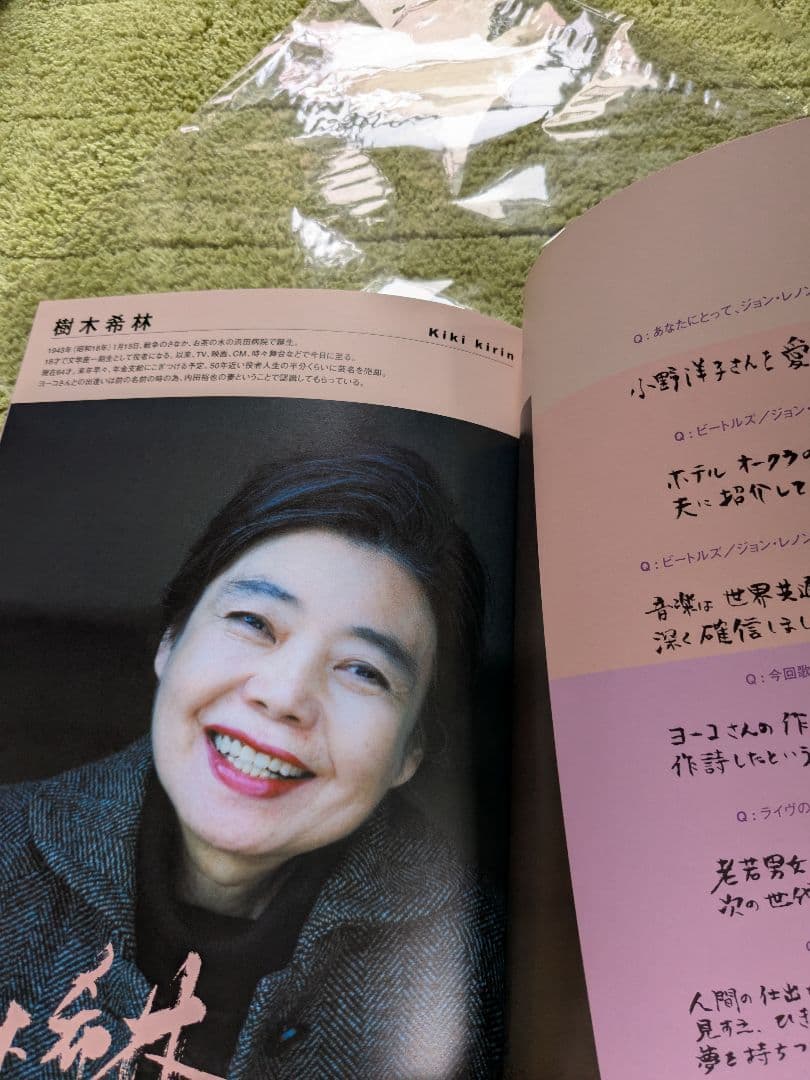 樹木希林
Kiki kirin
1943年(昭和18年)1月15日、戦争のさなか、お茶の水の浜田病院で誕生。
18才で文学座一期生として役者になる。以来、TV、映画、CM、時々舞台などで今日に至る。
現在64才。来年早々、年金支給にこぎつける予定。50年近い役者人生の半分くらいに芸名を売却。
ヨーコさんとの出逢いは前の名前の時の為、内田裕也の妻ということで認識してもらっている。
希林
Q:あなたにとって、ジョン・レノン
小野洋子さんを愛
Q:ビートルズ/ジョン・
ホテル オークラの
夫に紹介して
Q:ビートルズ/ジョン・レノン
音楽は世界共通
深く確信しまし
Q:今回歌
ヨーコさんの作
作詩したという
Q:ライヴの
老若男女
次の世代
人間の仕出
見すえ、ひき
夢を持ちつ